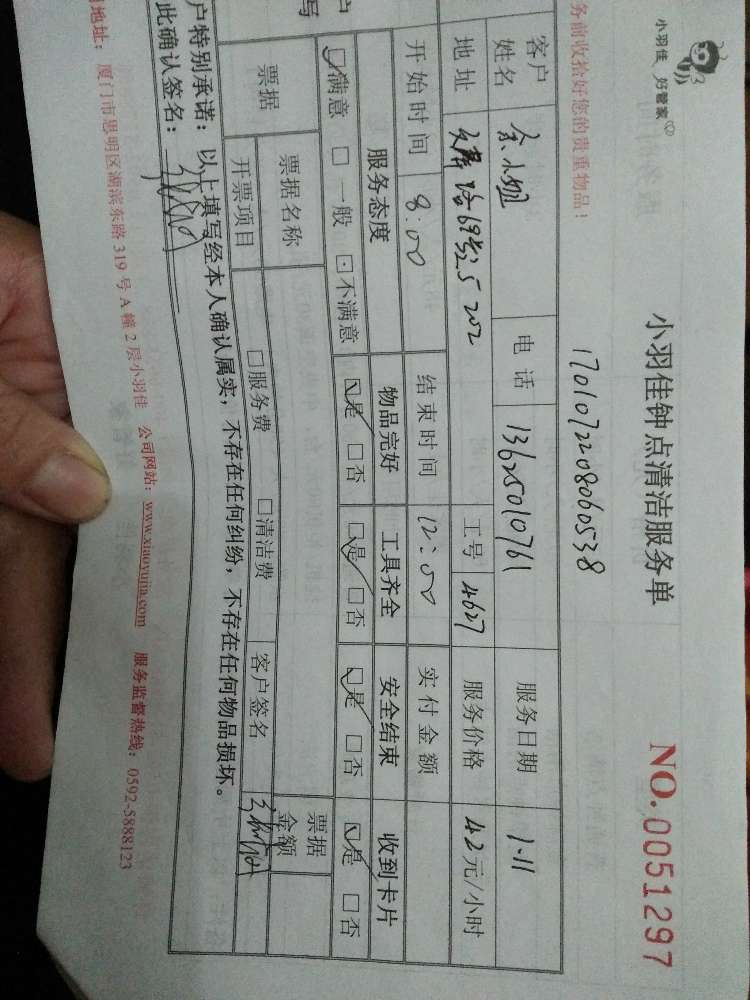 小羽佳 好管家
小羽佳钟点清洁服务单
NO.0051297
1701072208060538
务前收拾好您的贵重物品!
客户姓名 余小姐 电话 13625010761 服务日期 1.11
地址 69号25 202 工号 4627 服务价格 42元/小时
开始时间 8:00 结束时间 12:00 实付金额
服务态度 物品完好 工具齐全 安全结束 收到卡片
☑满意 □一般 □不满意 ☑是 □否 ☑是 □否 ☑是 □否 ☑是 □否
票据 票据名称 票据金额
开票项目 □服务费 □清洁费 客户签名
户特别承诺:以上填写经本人确认属实,不存在任何纠纷,不存在任何物品损坏。
此确认签名:
地址:厦门市思明区湖滨东路319号A幢2层小羽佳 公司网站:www.xiaoyujia.com 服务监督热线:0592-5888123